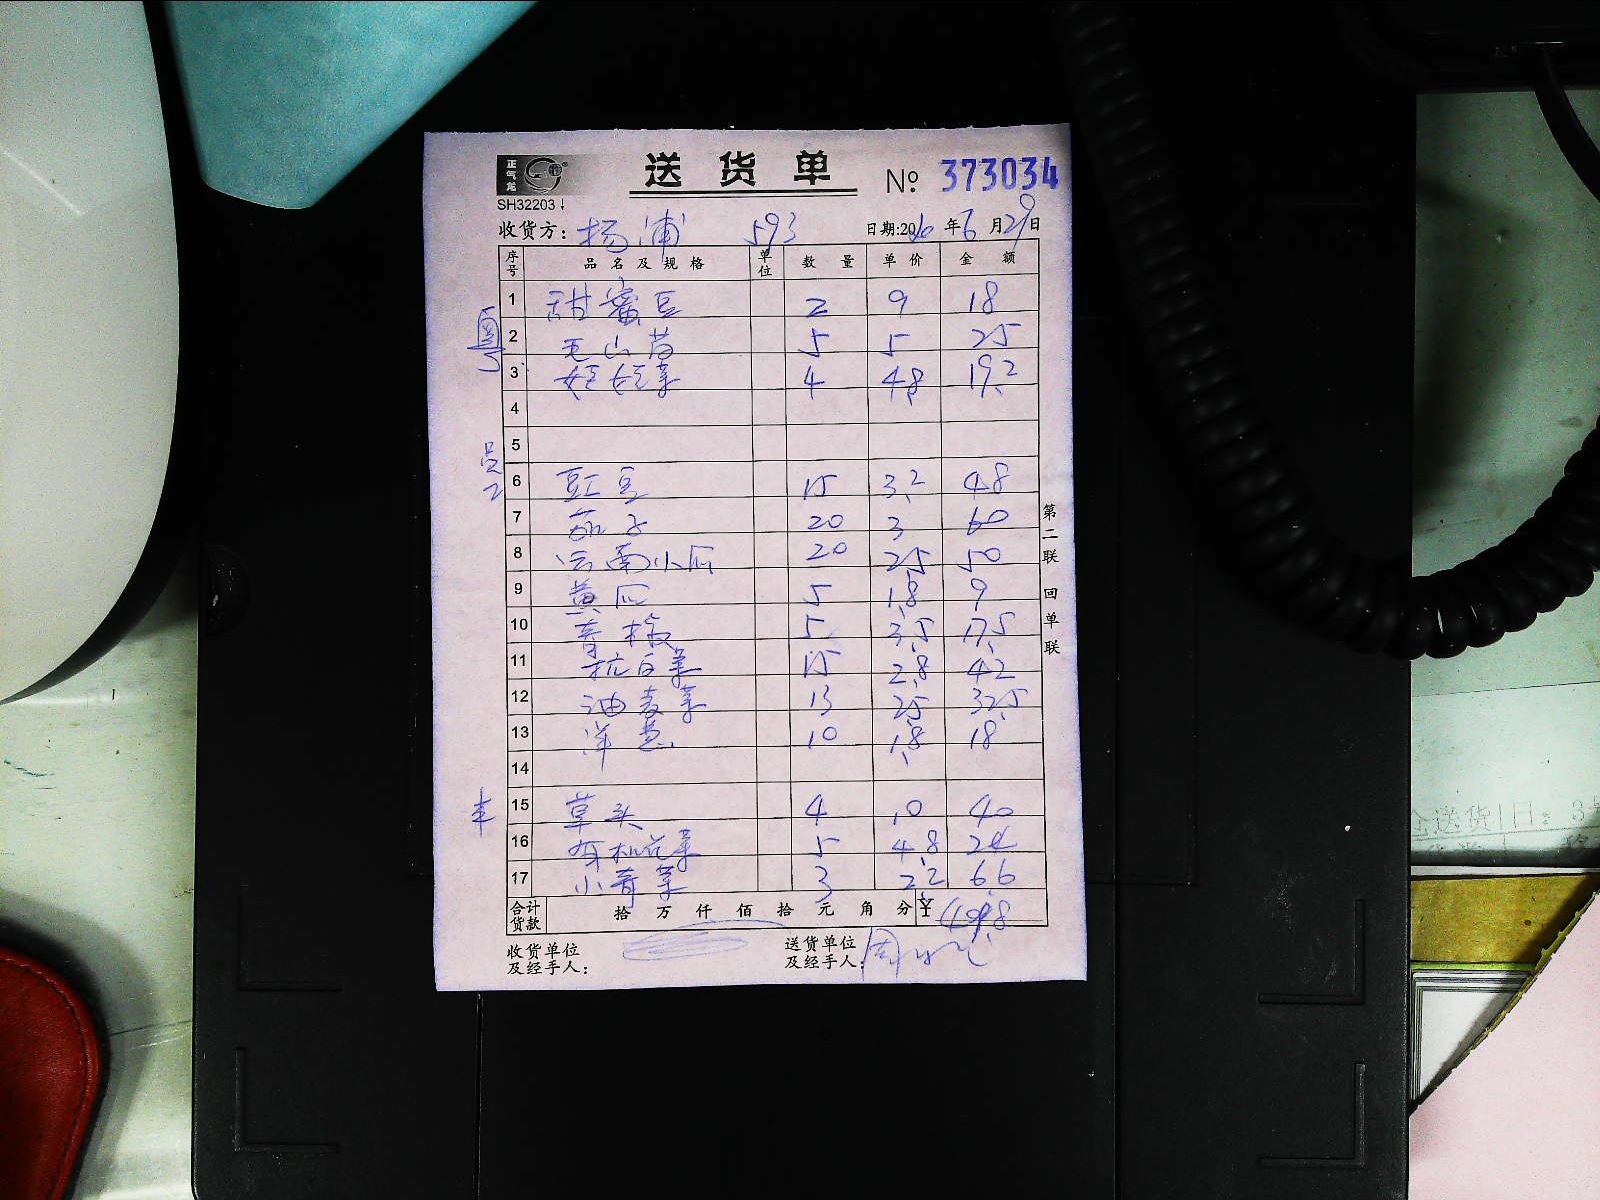 正气龙
SH32203
送 货 单 № 373034
收货方: 杨浦 593 日期:2016年6月29日
序号 品名及规格 单位 数量 单价 金额
1 甜蜜豆 2 9 18
2 毛山药 5 5 25
3 娃娃菜 4 4.8 19.2
4
5
6 豇豆 15 3.2 48
7 茄子 20 3 60
8 云南小瓜 20 2.5 50
9 黄瓜 5 1.8 9
10 青椒 5 3.5 17.5
11 杭白菜 15 2.8 42
12 油麦菜 13 2.5 32.5
13 洋葱 10 1.8 18
14
15 草头 4 10 40
16 有机花菜 5 4.8 24
17 小青菜 3 2.2 6.6
合计货款 拾 万 仟 佰 拾 元 角 分 ¥ 409.8
收货单位及经手人: 送货单位及经手人: 周
第二联 回单联
送货1日: 3